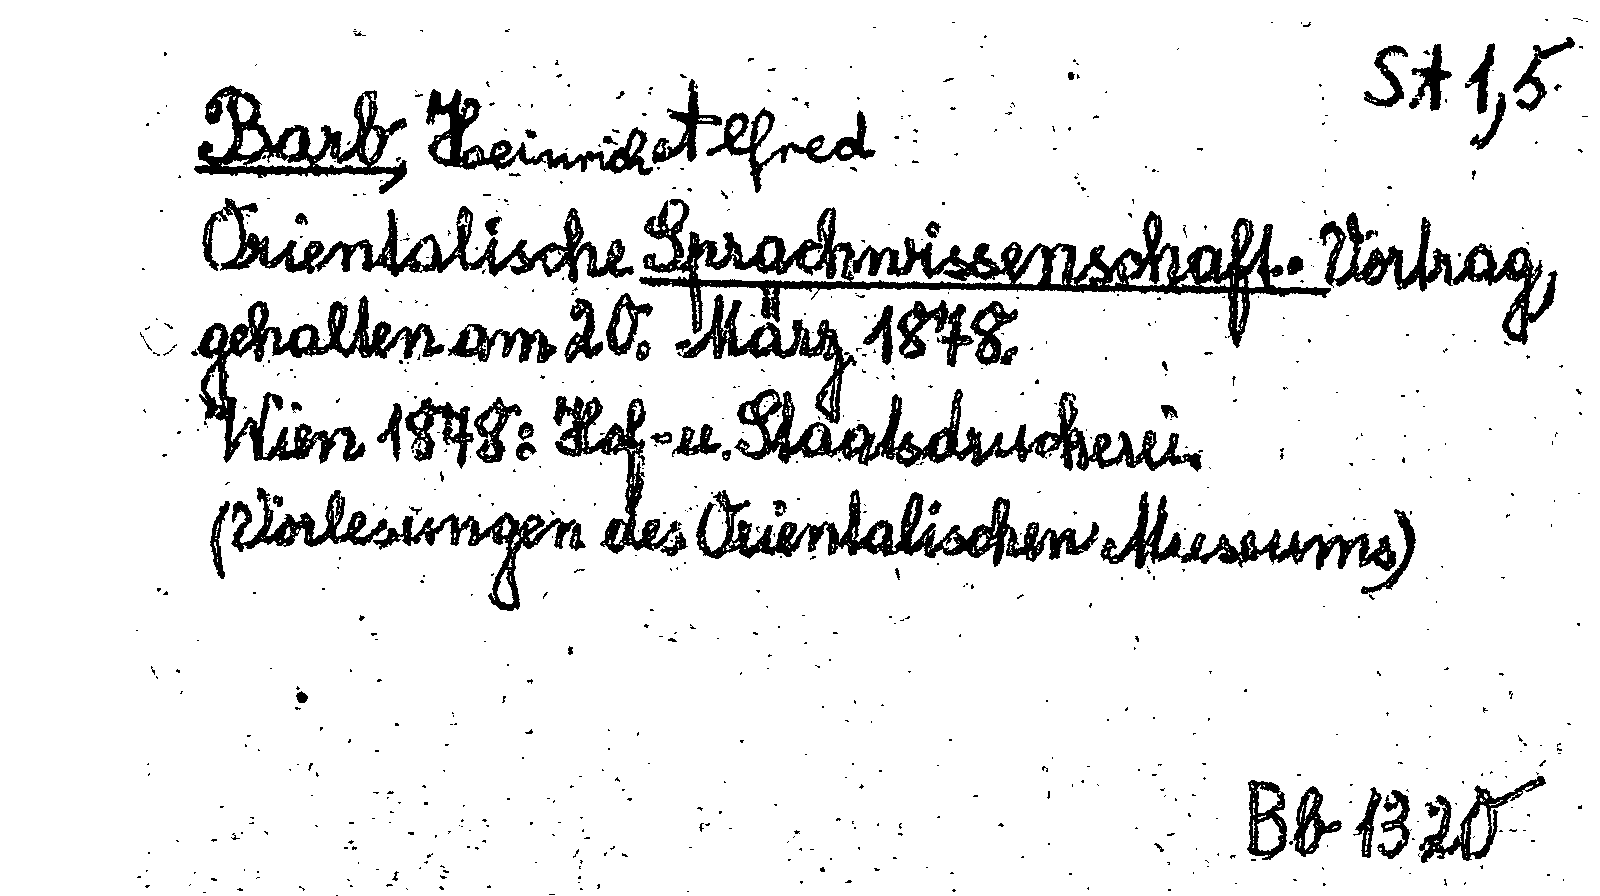 St 1,5
Barb, Heinrich Alfred
Orientalische Sprachwissenschaft. Vortrag,
gehalten am 20. März 1878.
Wien 1878: Hof-u. Staatsdruckerei.
(Vorlesungen des Orientalischen Museums)
Bb 1320